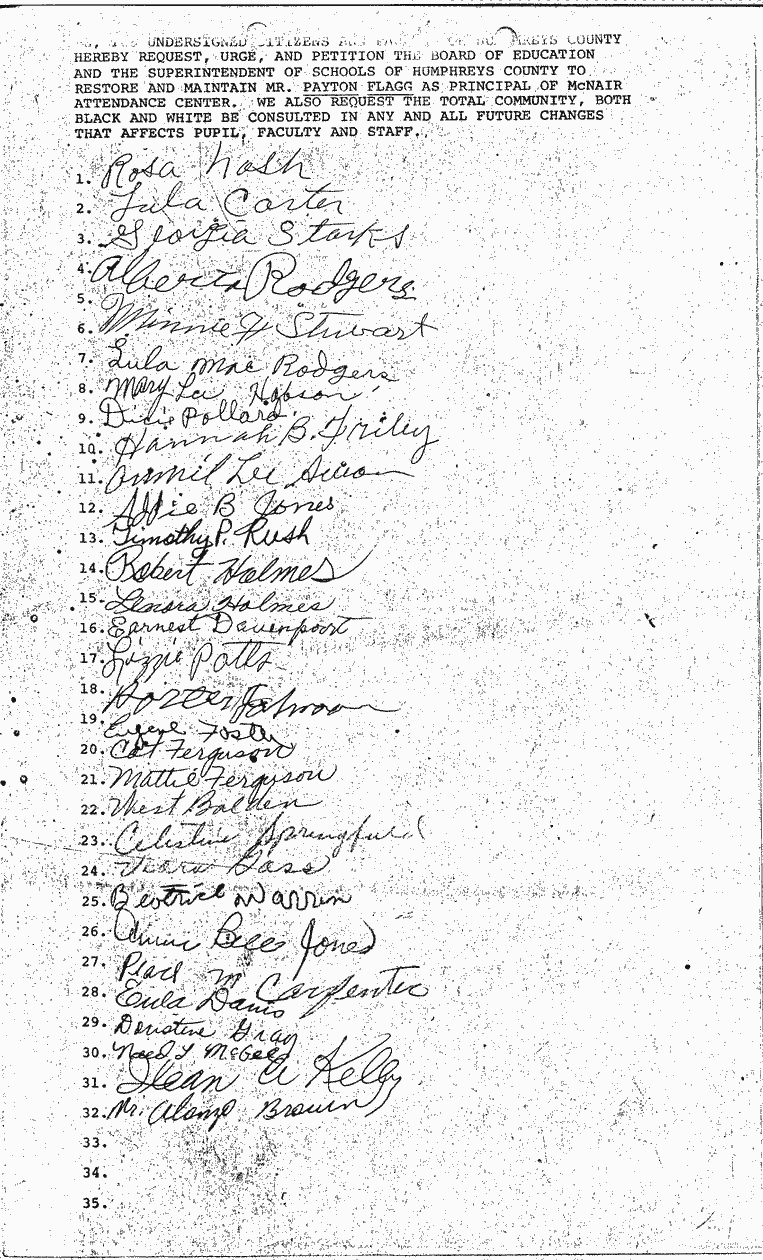 UNDERSIGNED CITIZENS AND OF HUMPHREYS COUNTY
HEREBY REQUEST, URGE, AND PETITION THE BOARD OF EDUCATION
AND THE SUPERINTENDENT OF SCHOOLS OF HUMPHREYS COUNTY TO
RESTORE AND MAINTAIN MR. PAYTON FLAGG AS PRINCIPAL OF McNAIR
ATTENDANCE CENTER. WE ALSO REQUEST THE TOTAL COMMUNITY, BOTH
BLACK AND WHITE BE CONSULTED IN ANY AND ALL FUTURE CHANGES
THAT AFFECTS PUPIL, FACULTY AND STAFF.
1. Rosa Nash
2. Lula Carter
3. Georgia Starks
4. Alberta Rodgers
5.
6. Minnie H Stewart
7. Lula Mae Rodgers
8. Mary Lee Hobson
9. Dixie Pollard
10. Hannah B. Friley
11. Lee
12. Affie B Jones
13. Timothy P. Rush
14. Robert Holmes
15. Lenora Holmes
16. Earnest Davenport
17. Lizzie Potts
18. Johnson
19. Eugene Foster
20. Cat Ferguson
21. Mattie Ferguson
22. West Bolden
23. Celestine Springfield
24.
25. Beatrice Warren
26. Annie Bell Jones
27. Pearl M Carpenter
28. Eula Davis
29. Doristine Gray
30. McGee
31. A Kelly
32. Mr. Alonzo Brown
33.
34.
35.